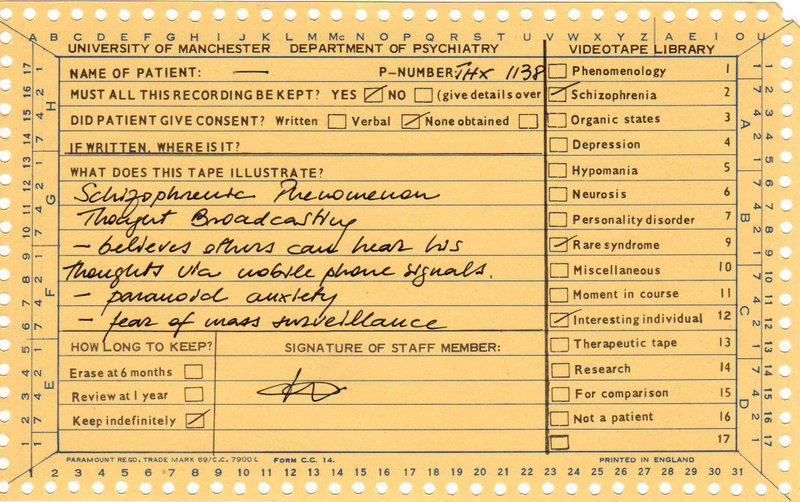 A B C D E F G H I J K L M Mc N O P Q R S T U V W X Y Z A E I O U
UNIVERSITY OF MANCHESTER DEPARTMENT OF PSYCHIATRY VIDEOTAPE LIBRARY
NAME OF PATIENT: — P-NUMBER: THX 1138
MUST ALL THIS RECORDING BE KEPT? YES NO (give details over
DID PATIENT GIVE CONSENT? Written Verbal None obtained
IF WRITTEN. WHERE IS IT?
WHAT DOES THIS TAPE ILLUSTRATE?
Schizophrenic Phenomenon
Thought Broadcasting
- believes others can hear his
thoughts via mobile phone signals.
- paranoid anxiety
- fear of mass surveillance
HOW LONG TO KEEP? SIGNATURE OF STAFF MEMBER:
Erase at 6 months
Review at 1 year
Keep indefinitely
Phenomenology 1
Schizophrenia 2
Organic states 3
Depression 4
Hypomania 5
Neurosis 6
Personality disorder 7
Rare syndrome 9
Miscellaneous 10
Moment in course 11
Interesting individual 12
Therapeutic tape 13
Research 14
For comparison 15
Not a patient 16
17
PARAMOUNT REGD. TRADE MARK 69/C.C. 7900 C FORM C.C. 14. PRINTED IN ENGLAND
1 2 3 4 5 6 7 8 9 10 11 12 13 14 15 16 17 18 19 20 21 22 23 24 25 26 27 28 29 30 31